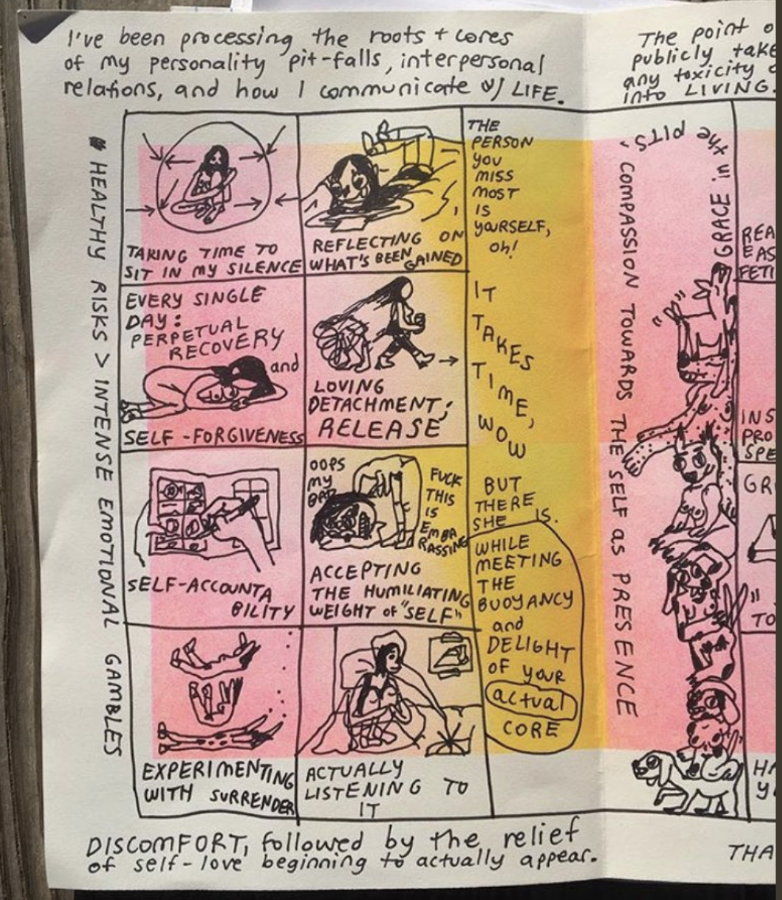 I've been processing the roots + cores
of my personality pit-falls, interpersonal
relations, and how I communicate w/ LIFE.
HEALTHY RISKS > INTENSE EMOTIONAL GAMBLES
TAKING TIME TO
SIT IN MY SILENCE
REFLECTING ON
WHAT'S BEEN GAINED
EVERY SINGLE
DAY:
PERPETUAL
RECOVERY
and
SELF-FORGIVENESS
LOVING
DETACHMENT;
RELEASE
SELF-ACCOUNTA
BILITY
OOPS
MY
BAD
FUCK
THIS
IS
EMBA
RASSING
ACCEPTING
THE HUMILIATING
WEIGHT OF "SELF"
EXPERIMENTING
WITH SURRENDER
ACTUALLY
LISTENING TO
IT
THE
PERSON
YOU
MISS
MOST
IS
YOURSELF,
Oh!
IT
TAKES
TIME,
WOW
BUT
THERE
SHE IS.
WHILE
MEETING
THE
BUOYANCY
and
DELIGHT
OF YOUR
actual
CORE
DISCOMFORT, followed by the relief
of self-love beginning to actually appear.
The point o
publicly take
any toxicity
into LIVING.
GRACE in the PITS,
COMPASSION TOWARDS THE SELF as PRESENCE
REA
EAS
FETI
INS
PRO
SPE
GR
TO
HA
Y
THA